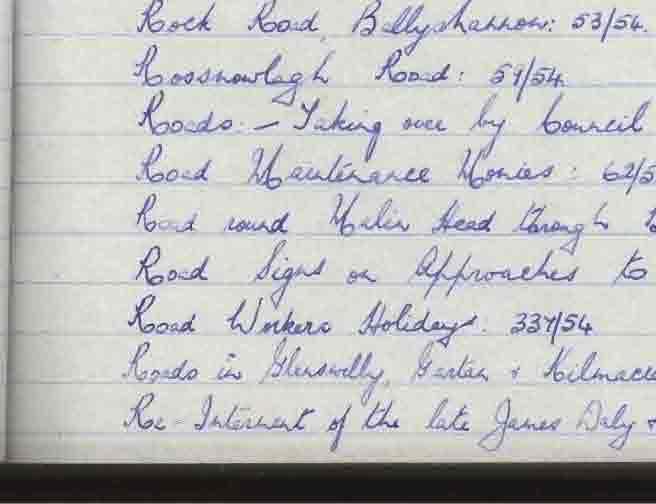 Rock Road, Ballyshannon: 53/54.
Rossnowlagh Road: 59/54
Roads:- Taking over by Council
Road Maintenance Monies: 62/5
Road round Malin Head through
Road Signs on Approaches to
Road Workers Holidays. 337/54
Roads in Glenswilly, Gartan + Kilmacre
Re-Interment of the late James Daly +